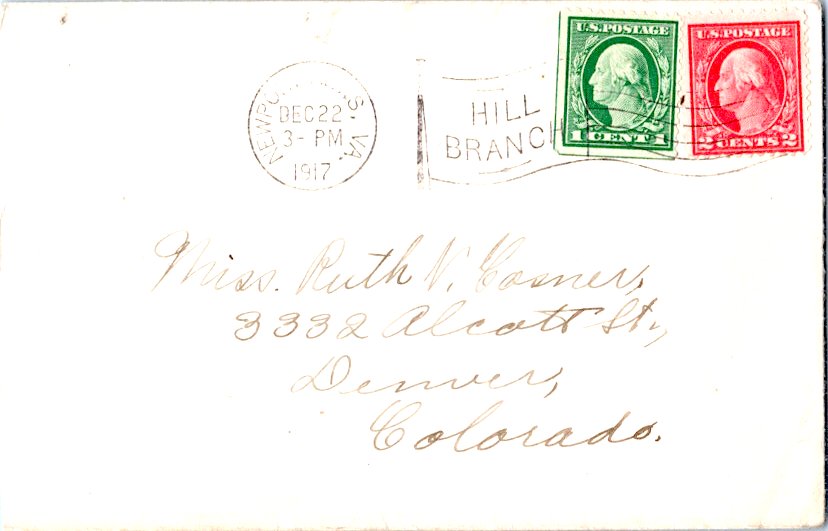 U.S. POSTAGE
1 CENT 1
U.S. POSTAGE
2 CENTS 2
S. VA.
DEC 22
3- PM
1917
HILL
BRANCH
Miss. Ruth V. Cosner,
3332 Alcott St.,
Denver,
Colorado.